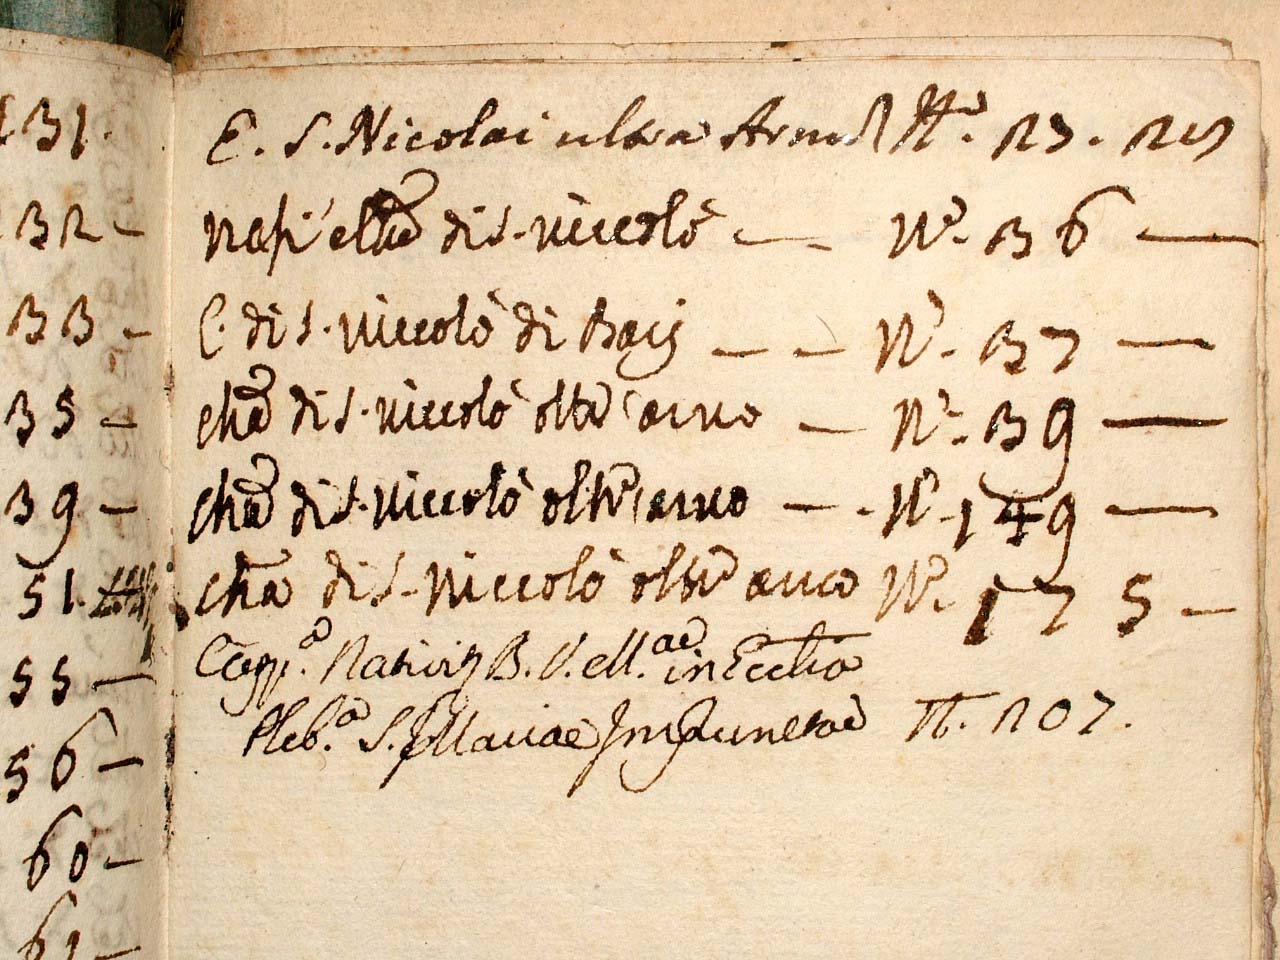 31.
32 -
33 -
35 -
39 -
51.
55 -
56 -
60 -
61 -
E. S. Nicolai ultra Arnu N.º 23. 24
di S. niccolò — N.º 36 —
C. di S. niccolò di — — N.º 37 —
chã di S. niccolò oltr' arno — N.º 39 —
chã di S. niccolò oltr' arno — - N.º 149 —
chã di S. niccolò oltr' arno N.º 175 —
Capp.ª Nativit B. V. M.ae in Ecclia
Pleb.ª S. Mariae Impunetae N. 207.